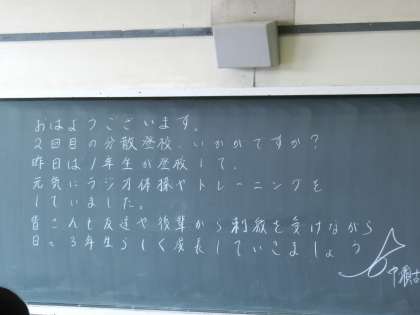 おはようございます。
2回目の分散登校、いかがですか?
昨日は1年生が登校して、
元気にラジオ体操やトレーニングを
していました。
皆さんも友達や後輩から刺激を受けながら
日々3年生らしく成長していきましょう